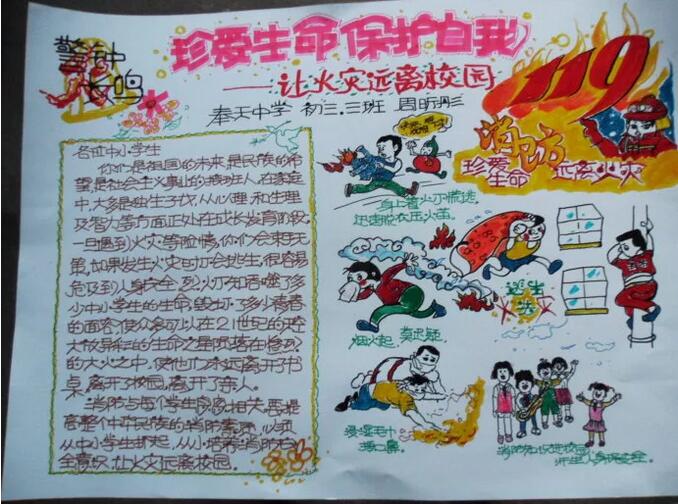 警钟
长鸣
珍爱生命保护自我
——让火灾远离校园
奉天中学 初三.三班 周昕彤
119
消防
珍爱 远离火灾
生命
各位中小学生
你们是祖国的未来,是民族的希
望,是社会主义事业的接班人,在家庭
中,大多是独生子代,从心理,和生理
及智力等方面正处在成长发育阶段,
一旦遇到火灾等险情,你们会束手无
策,如果发生火灾时不会逃生,很容易
危及到人身安全,烈火
中小学生的生命,
的面容,使众多可以在21世纪
大放异彩的生命之星陨落在
的大火之中,使他们永远离开了书
桌,离开了校园,离开了亲人。
消防与每个学生息息相关,要提
高整个中华民族的消防素质,必须
从中小学生抓起,从小培养消防安
全意识,让火灾远离校园。
身上着火不慌逃
迅速脱衣压火苗。
逃生
火灾
烟火起,莫迟疑。
浸湿毛巾
捂口鼻。